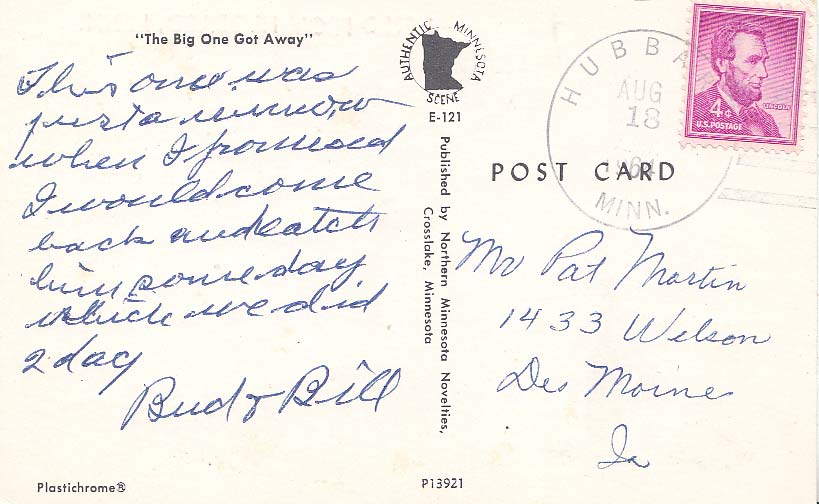 "The Big One Got Away"
This one was
just a minnow
when I promised
I would come
back and catch
him some day
which we did
2 day
Bud & Bill
AUTHENTIC MINNESOTA
SCENE
E-121
Published by Northern Minnesota Novelties,
Crosslake, Minnesota
HUBBA
AUG
18
1964
MINN.
4¢
LINCOLN
U.S. POSTAGE
POST CARD
Mr Pat Martin
1433 Wilson
Des Moines
Ia
Plastichrome®
P13921